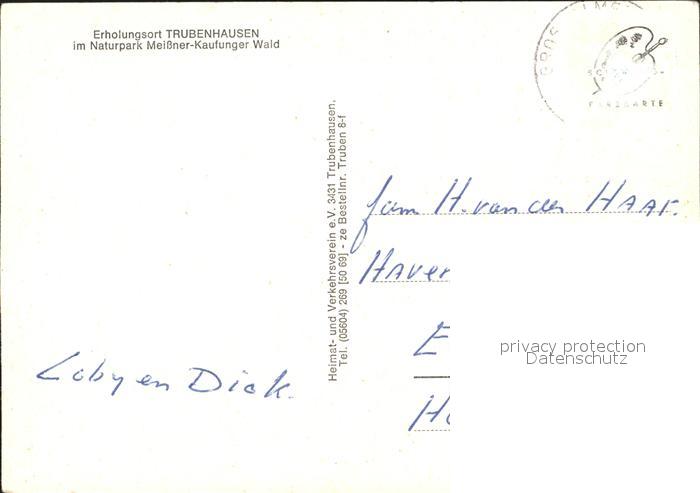 Erholungsort TRUBENHAUSEN
im Naturpark Meißner-Kaufunger Wald
Heimat- und Verkehrsverein e.V. 3431 Trubenhausen,
Tel. (05604) 269 [50 69] - ze Bestellnr. Truben 8-f
FARBKARTE
fam H. van der HAAR.
HAVER
E
privacy protection
Datenschutz
Ho
Loby en Dick.